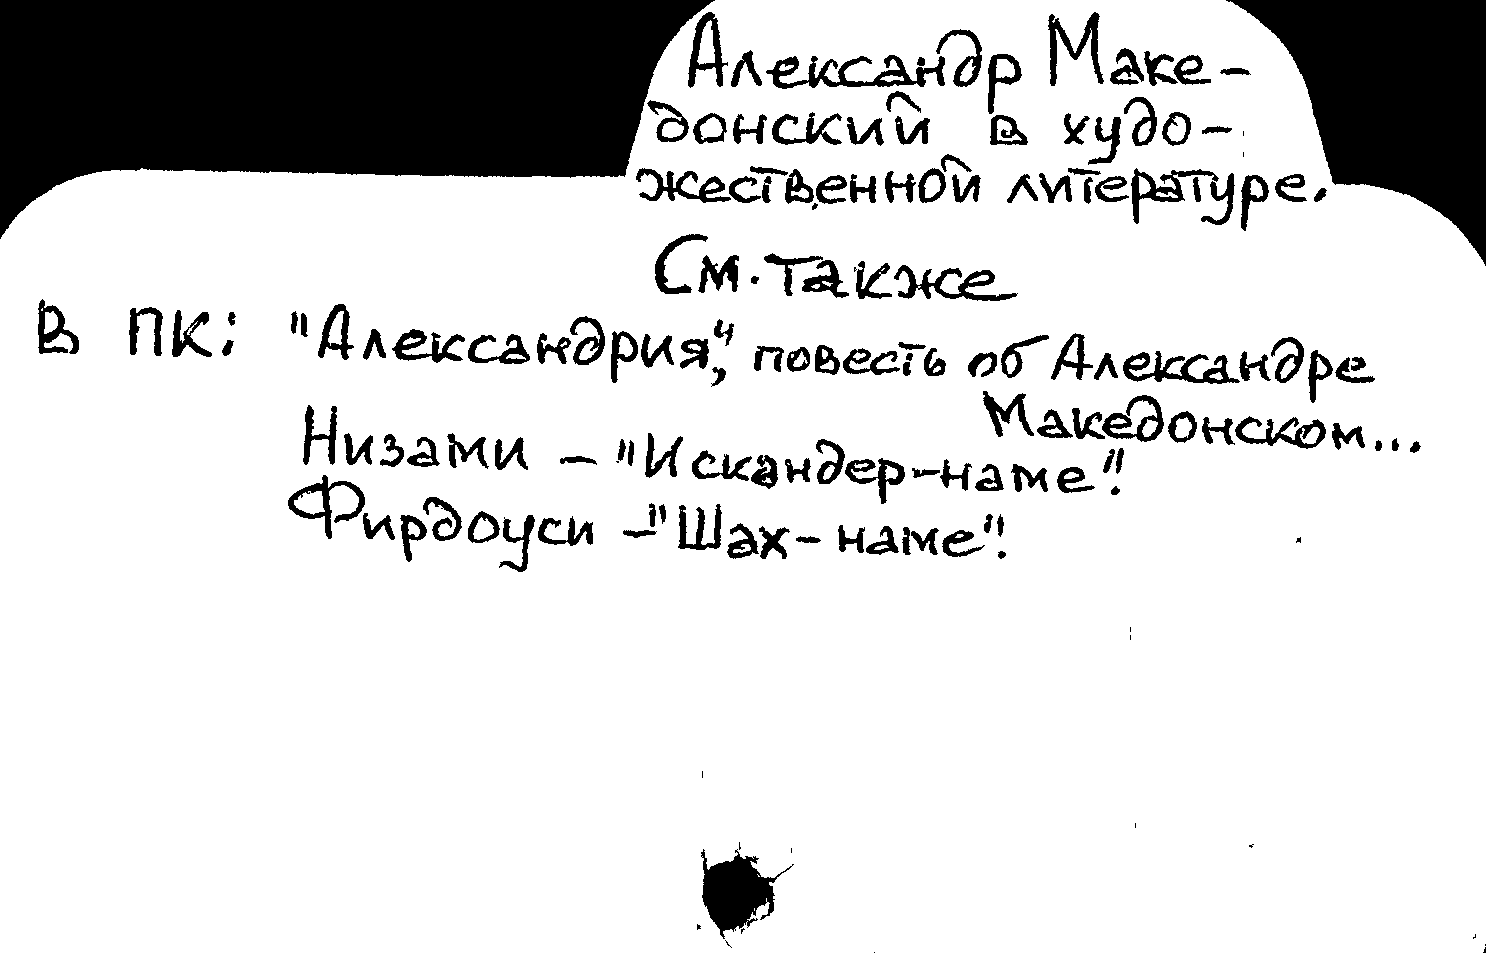 Александр Маке-
донский в худо-
жественной литературе.
См. также
В ПК: "Александрия", повесть об Александре
Македонском...
Низами - "Искандер-наме".
Фирдоуси - "Шах-наме".